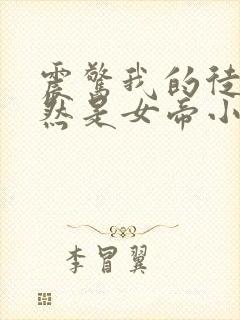 震惊我的徒
然是女帝小
李冒翼